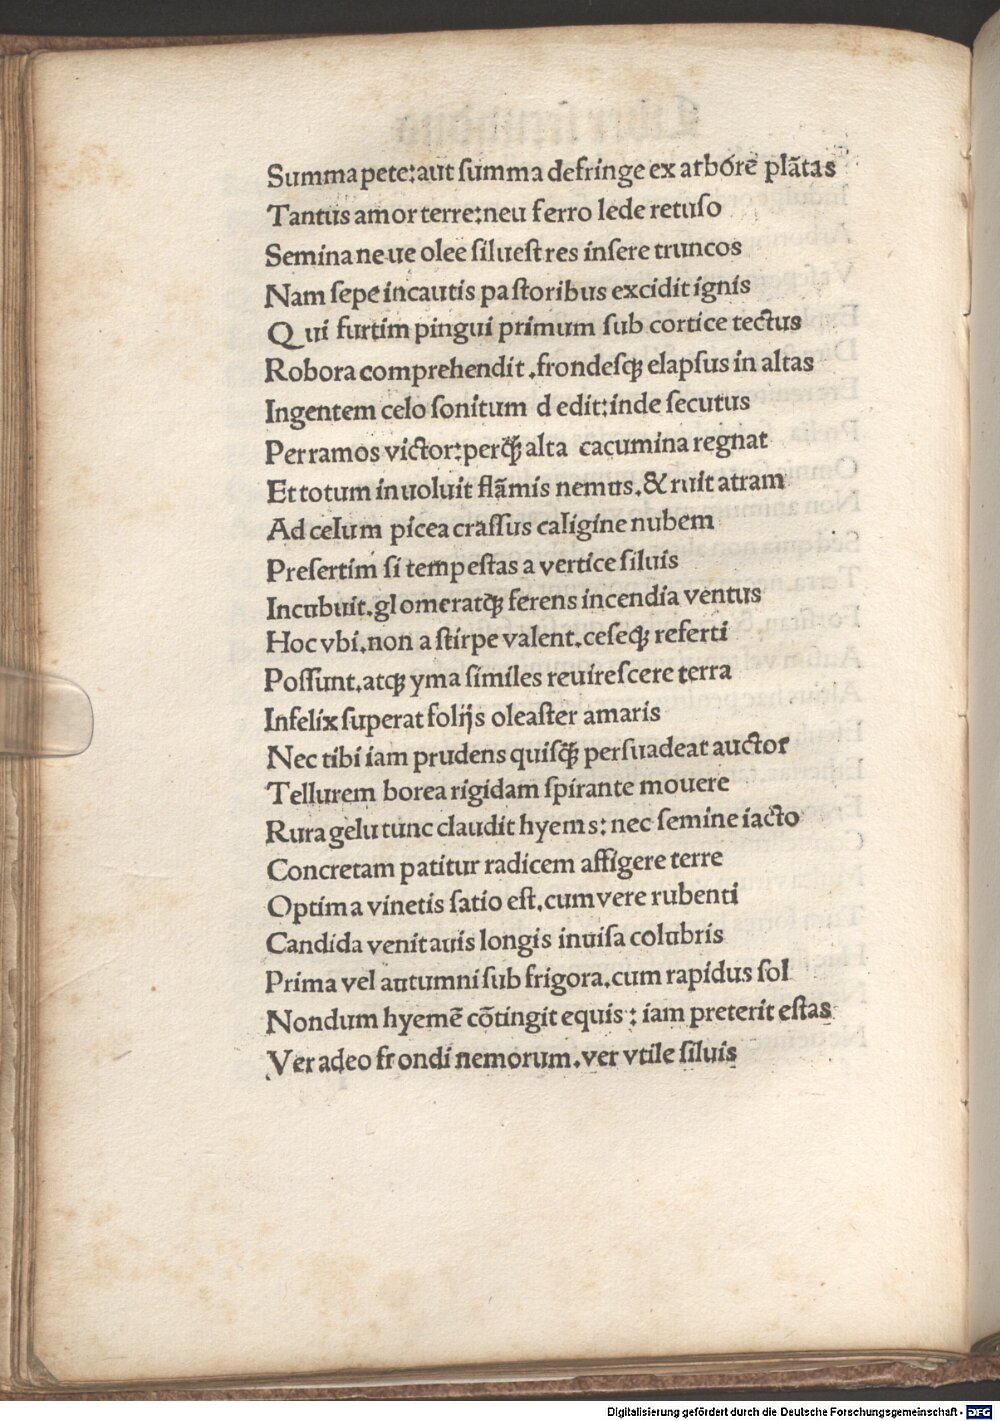 Summa pete:aut ſumma defringe ex arbore plātas
Tantus amor terre:neu ferro lede retuſo
Semina neue olee ſilueſtres inſere truncos
Nam ſepe incautis paſtoribus excidit ignis
Qui furtim pingui primum ſub cortice tectus
Robora comprehendit.frondeſqꝫ elapſus in altas
Ingentem celo ſonitum dedit:inde ſecutus
Per ramos victor:perqꝫ alta cacumina regnat
Et totum inuoluit flāmis nemus.& ruit atram
Ad celum picea craſſus caligine nubem
Preſertim ſi tempeſtas a vertice ſiluis
Incubuit.glomeratqꝫ ferens incendia ventus
Hoc vbi.non a ſtirpe valent.ceſeqꝫ referti
Poſſunt.atqꝫ yma ſimiles reuireſcere terra
Infelix ſuperat folijs oleaſter amaris
Nec tibi iam prudens quiſqꝫ perſuadeat auctor
Tellurem borea rigidam ſpirante mouere
Rura gelu tunc claudit hyems: nec ſemine iacto
Concretam patitur radicem affigere terre
Optima vinetis ſatio eſt.cum vere rubenti
Candida venit auis longis inuiſa colubris
Prima vel autumni ſub frigora.cum rapidus ſol
Nondum hyemē cōtingit equis: iam preterit eſtas
Ver adeo frondi nemorum.ver vtile ſiluis
Digitalisierung gefördert durch die Deutsche Forschungsgemeinschaft - DFG